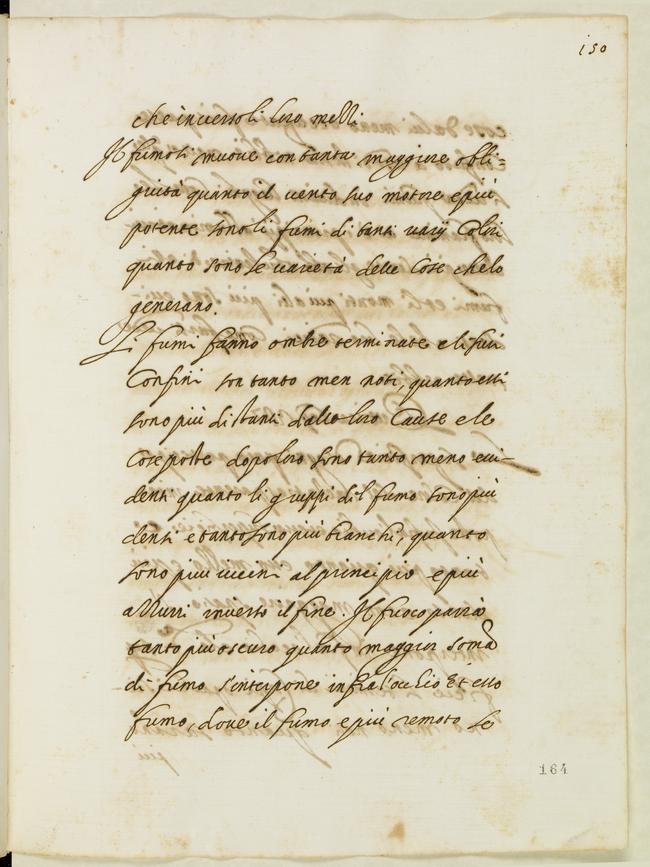 150
che inverso li loro mezzi
Il fumo si muove con tanta maggiore obli=
quità quanto il vento suo motore è più
potente sono li fumi di tanti varij Colori
quanto sono le varietà delle Cose che lo
generano.
Li fumi fanno ombre terminate e li suoi
Confini son tanto men noti, quanto essi
sono più distanti dalle loro Cause e le
Cose poste dopo loro sono tanto meno evi-
denti quanto li gruppi del fumo sono più
denti e tanto sono più bianchi, quanto
sono più vicini al principio e più
azzurri inverso il fine. Il fuoco parrà
tanto più oscuro quanto maggior soma
di fumo s'interpone infra l'occhio et esso
fumo, dove il fumo è più remoto le
164